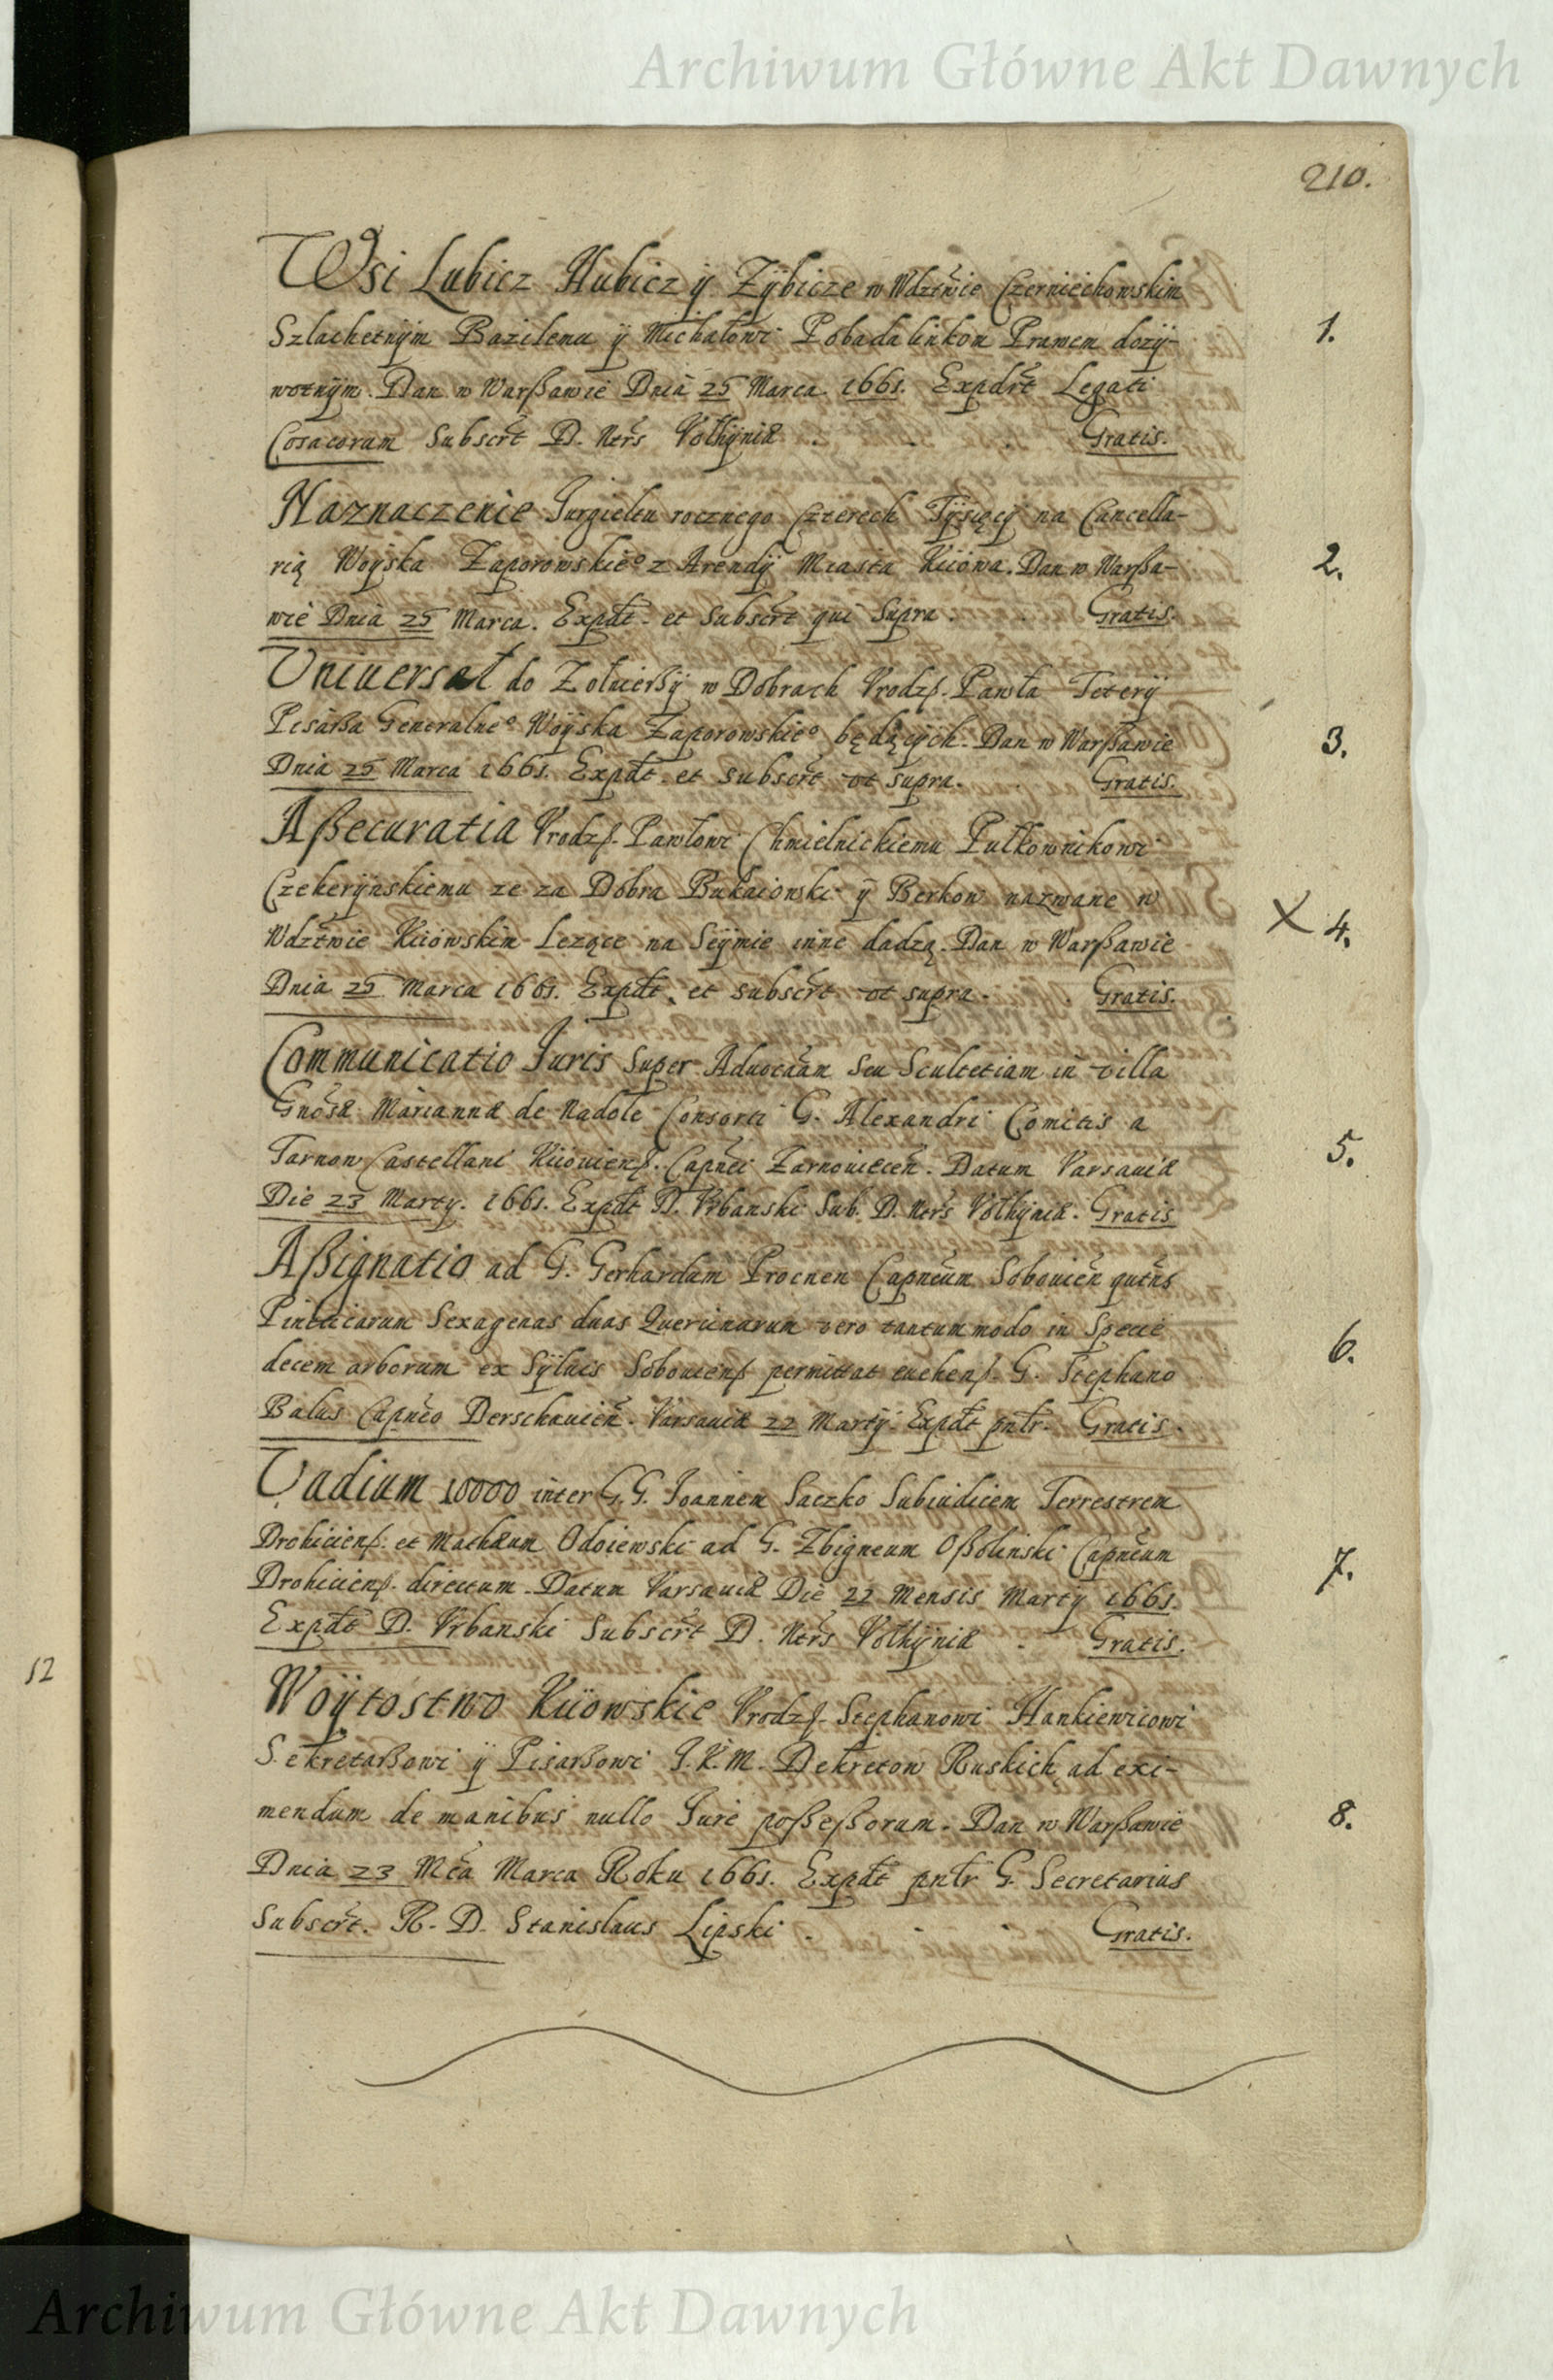 Archiwum Główne Akt Dawnych
210.
Wsi Lubicz Hubicz ÿ Zÿbicze w Wdztwie Czerniechowskim
Szlachetnÿm Bazilemu ÿ Michałowi Pobadalinkom Prawem dozÿ-
wotnÿm. Dan w Warßawie Dnia 25 Marca 1661. Expdrt Legati
Cosacorum Subscrt D. Ntrs Volhÿniæ . . . Gratis.
1.
Naznaczenie Jurgieltu rocznego Czterech Tÿsięcÿ na Cancella-
rią Woÿska Zaporowskieº z Arendÿ Miasta Kiiowa. Dan w Warßa-
wie Dnia 25 Marca. Expdt. et Subscrt qui Supra. Gratis.
2.
Vniuersał do Zołnierßÿ w Dobrach Vrodzß. Pawła Teterÿ
Pisarßa Generalneº Woÿska Zaporowskieº będącÿch. Dan w Warßawie
Dnia 25 Marca 1661. Expdt. et subscrt vt supra. Gratis.
3.
Aßecuratia Vrodzß. Pawłowi Chmielnickiemu Pułkownikowi
Czeherÿnskiemu ze za Dobra Bukaionski ÿ Berkow nazwane w
Wdztwie Kiiowskim Lezące na Seÿmie inne dadzą. Dan w Warßawie
Dnia 25 Marca 1661. Expdt. et subscrt vt supra. Gratis.
X 4.
Communicatio Juris Super Aduocaam Seu Scultetiam in villa
Gnosæ Mariannæ de Nadole Consorti G. Alexandri Comitis a
Tarnow Castellani Kiiouienß. Capnei Zarnouiecen. Datum Varsauiæ
Die 23 Martÿ. 1661. Expdt D. Vrbanski Sub. D. Ntrs Volhÿniæ. Gratis
5.
Aßignatio ad G. Gerhardum Procnen Capneum Sobouien qutns
Pinticarum Sexagenas duas Quercinarum vero tantummodo in Specie
decem arborum ex Sÿluis Sobouienß permittat euehenß. G. Stephano
Balus Capneo Derschauien. Varsauiæ 22 Martÿ. Expdt pntr. Gratis.
6.
Vadium 10000 inter G.G. Joannem Saczko Subiudicem Terrestrem
Drohicienß. et Mathæum Odoiewski ad G. Zbigneum Oßolinski Capneum
Drohicienß. directum. Datum Varsauiæ Die 22 Mensis Martÿ 1661.
Expdt D. Vrbanski Subscrt D. Ntrs Volhÿniæ . Gratis.
7.
Woÿtostwo Kiiowskie Vrodzß. Stephanowi Hankiewicowi
Sekretarßowi ÿ Pisarßowi J.K.M. Dekretow Ruskich ad exi-
mendum de manibus nullo Jure poßeßorum. Dan w Warßawie
Dnia 23 Mca Marca Roku 1661. Expdt pntr G. Secretarius
Subscrt. R. D. Stanislaus Lipski . . . Gratis.
8.
52
Archiwum Główne Akt Dawnych